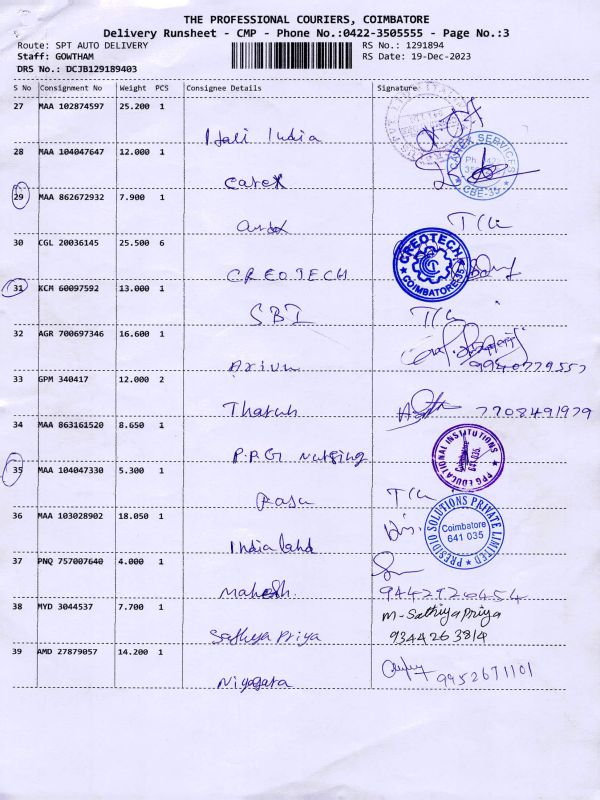 THE PROFESSIONAL COURIERS, COIMBATORE
Delivery Runsheet - CMP - Phone No.:0422-3505555 - Page No.:3
Route: SPT AUTO DELIVERY RS No.: 1291894
Staff: GOWTHAM RS Date: 19-Dec-2023
DRS No.: DCJB129189403
S No Consignment No Weight PCS Consignee Details Signature
27 MAA 102874597 25.200 1
Itali India
28 MAA 104047647 12.000 1
Carex
CAREX SERVICES
CBE-35
29 MAA 862672932 7.900 1
30 CGL 20036145 25.500 6
CREOTECH
CREOTECH
COIMBATORE-35
31 KCM 60097592 13.000 1
SBI
32 AGR 700697346 16.600 1
Arivu
33 GPM 340417 12.000 2
Tharun
7708491979
34 MAA 863161520 8.650 1
P.P.G Nursing
PPG EDUCATIONAL INSTITUTIONS
35 MAA 104047330 5.300 1
Rasu
36 MAA 103028902 18.050 1
India land
PRESIDIO SOLUTIONS PRIVATE LIMITED
Coimbatore
641 035
37 PNQ 757007640 4.000 1
Mahesh.
38 MYD 3044537 7.700 1
M-Sathiya Priya
Sathya Priya
9344263814
39 AMD 27879057 14.200 1
9952671101
Niyagara